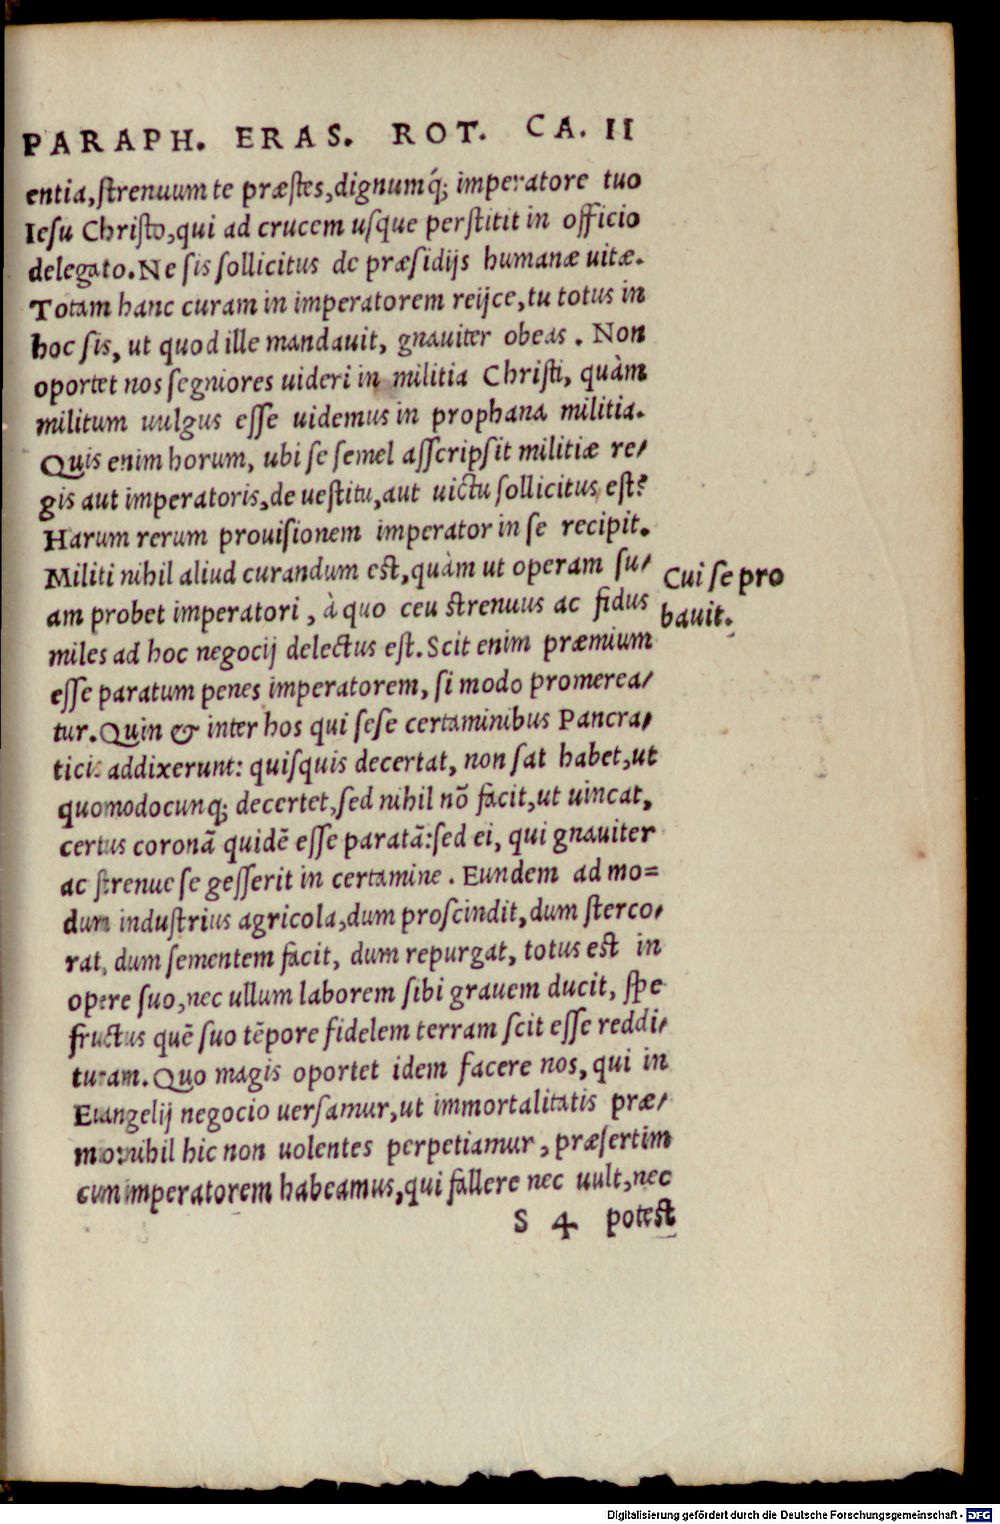 PARAPH. ERAS. ROT. CA. II
entia, ſtrenuum te præſtes, dignumq́; imperatore tuo
Ieſu Chriſto, qui ad crucem uſque perſtitit in officio
delegato. Ne ſis ſollicitus de præſidijs humanæ uitæ.
Totam hanc curam in imperatorem reijce, tu totus in
hoc ſis, ut quod ille mandauit, gnauiter obeas. Non
oportet nos ſegniores uideri in militia Chriſti, quàm
militum uulgus eſſe uidemus in prophana militia.
Quis enim horum, ubi ſe ſemel aſſcripſit militiæ re/
gis aut imperatoris, de ueſtitu, aut uictu ſollicitus eſt?
Harum rerum prouiſionem imperator in ſe recipit.
Militi nihil aliud curandum eſt, quàm ut operam ſu/
am probet imperatori, à quo ceu ſtrenuus ac fidus
miles ad hoc negocij delectus eſt. Scit enim præmium
eſſe paratum penes imperatorem, ſi modo promerea/
tur. Quin & inter hos qui ſeſe certaminibus Pancra/
ticis addixerunt: quiſquis decertat, non ſat habet, ut
quomodocunq; decertet, ſed nihil nõ facit, ut uincat,
certus coronã quidẽ eſſe paratã: ſed ei, qui gnauiter
ac ſtrenue ſe geſſerit in certamine. Eundem ad mo=
dum induſtrius agricola, dum proſcindit, dum ſterco/
rat, dum ſementem facit, dum repurgat, totus eſt in
opere ſuo, nec ullum laborem ſibi grauem ducit, ſpe
fructus quẽ ſuo tẽpore fidelem terram ſcit eſſe reddi/
turam. Quo magis oportet idem facere nos, qui in
Euangelij negocio uerſamur, ut immortalitatis præ/
mio nihil hic non uolentes perpetiamur, præſertim
cum imperatorem habeamus, qui fallere nec uult, nec
S 4 poteſt
Cui ſe pro
bauit.
Digitalisierung gefördert durch die Deutsche Forschungsgemeinschaft - DFG